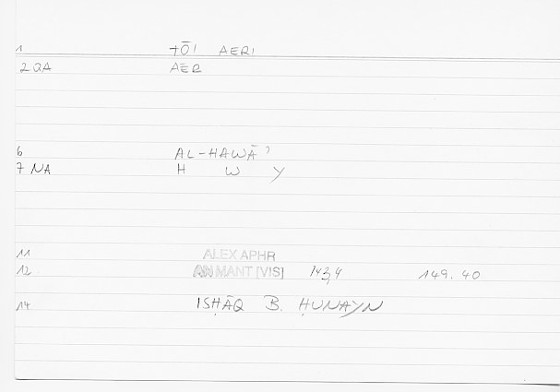 1 TŌI AERI
2 QA AER
6 AL-HAWĀʾ
7 NA H W Y
11 ALEX APHR
12 AN MANT [VIS] 143,4 149.40
14 ISḤĀQ B. ḤUNAYN